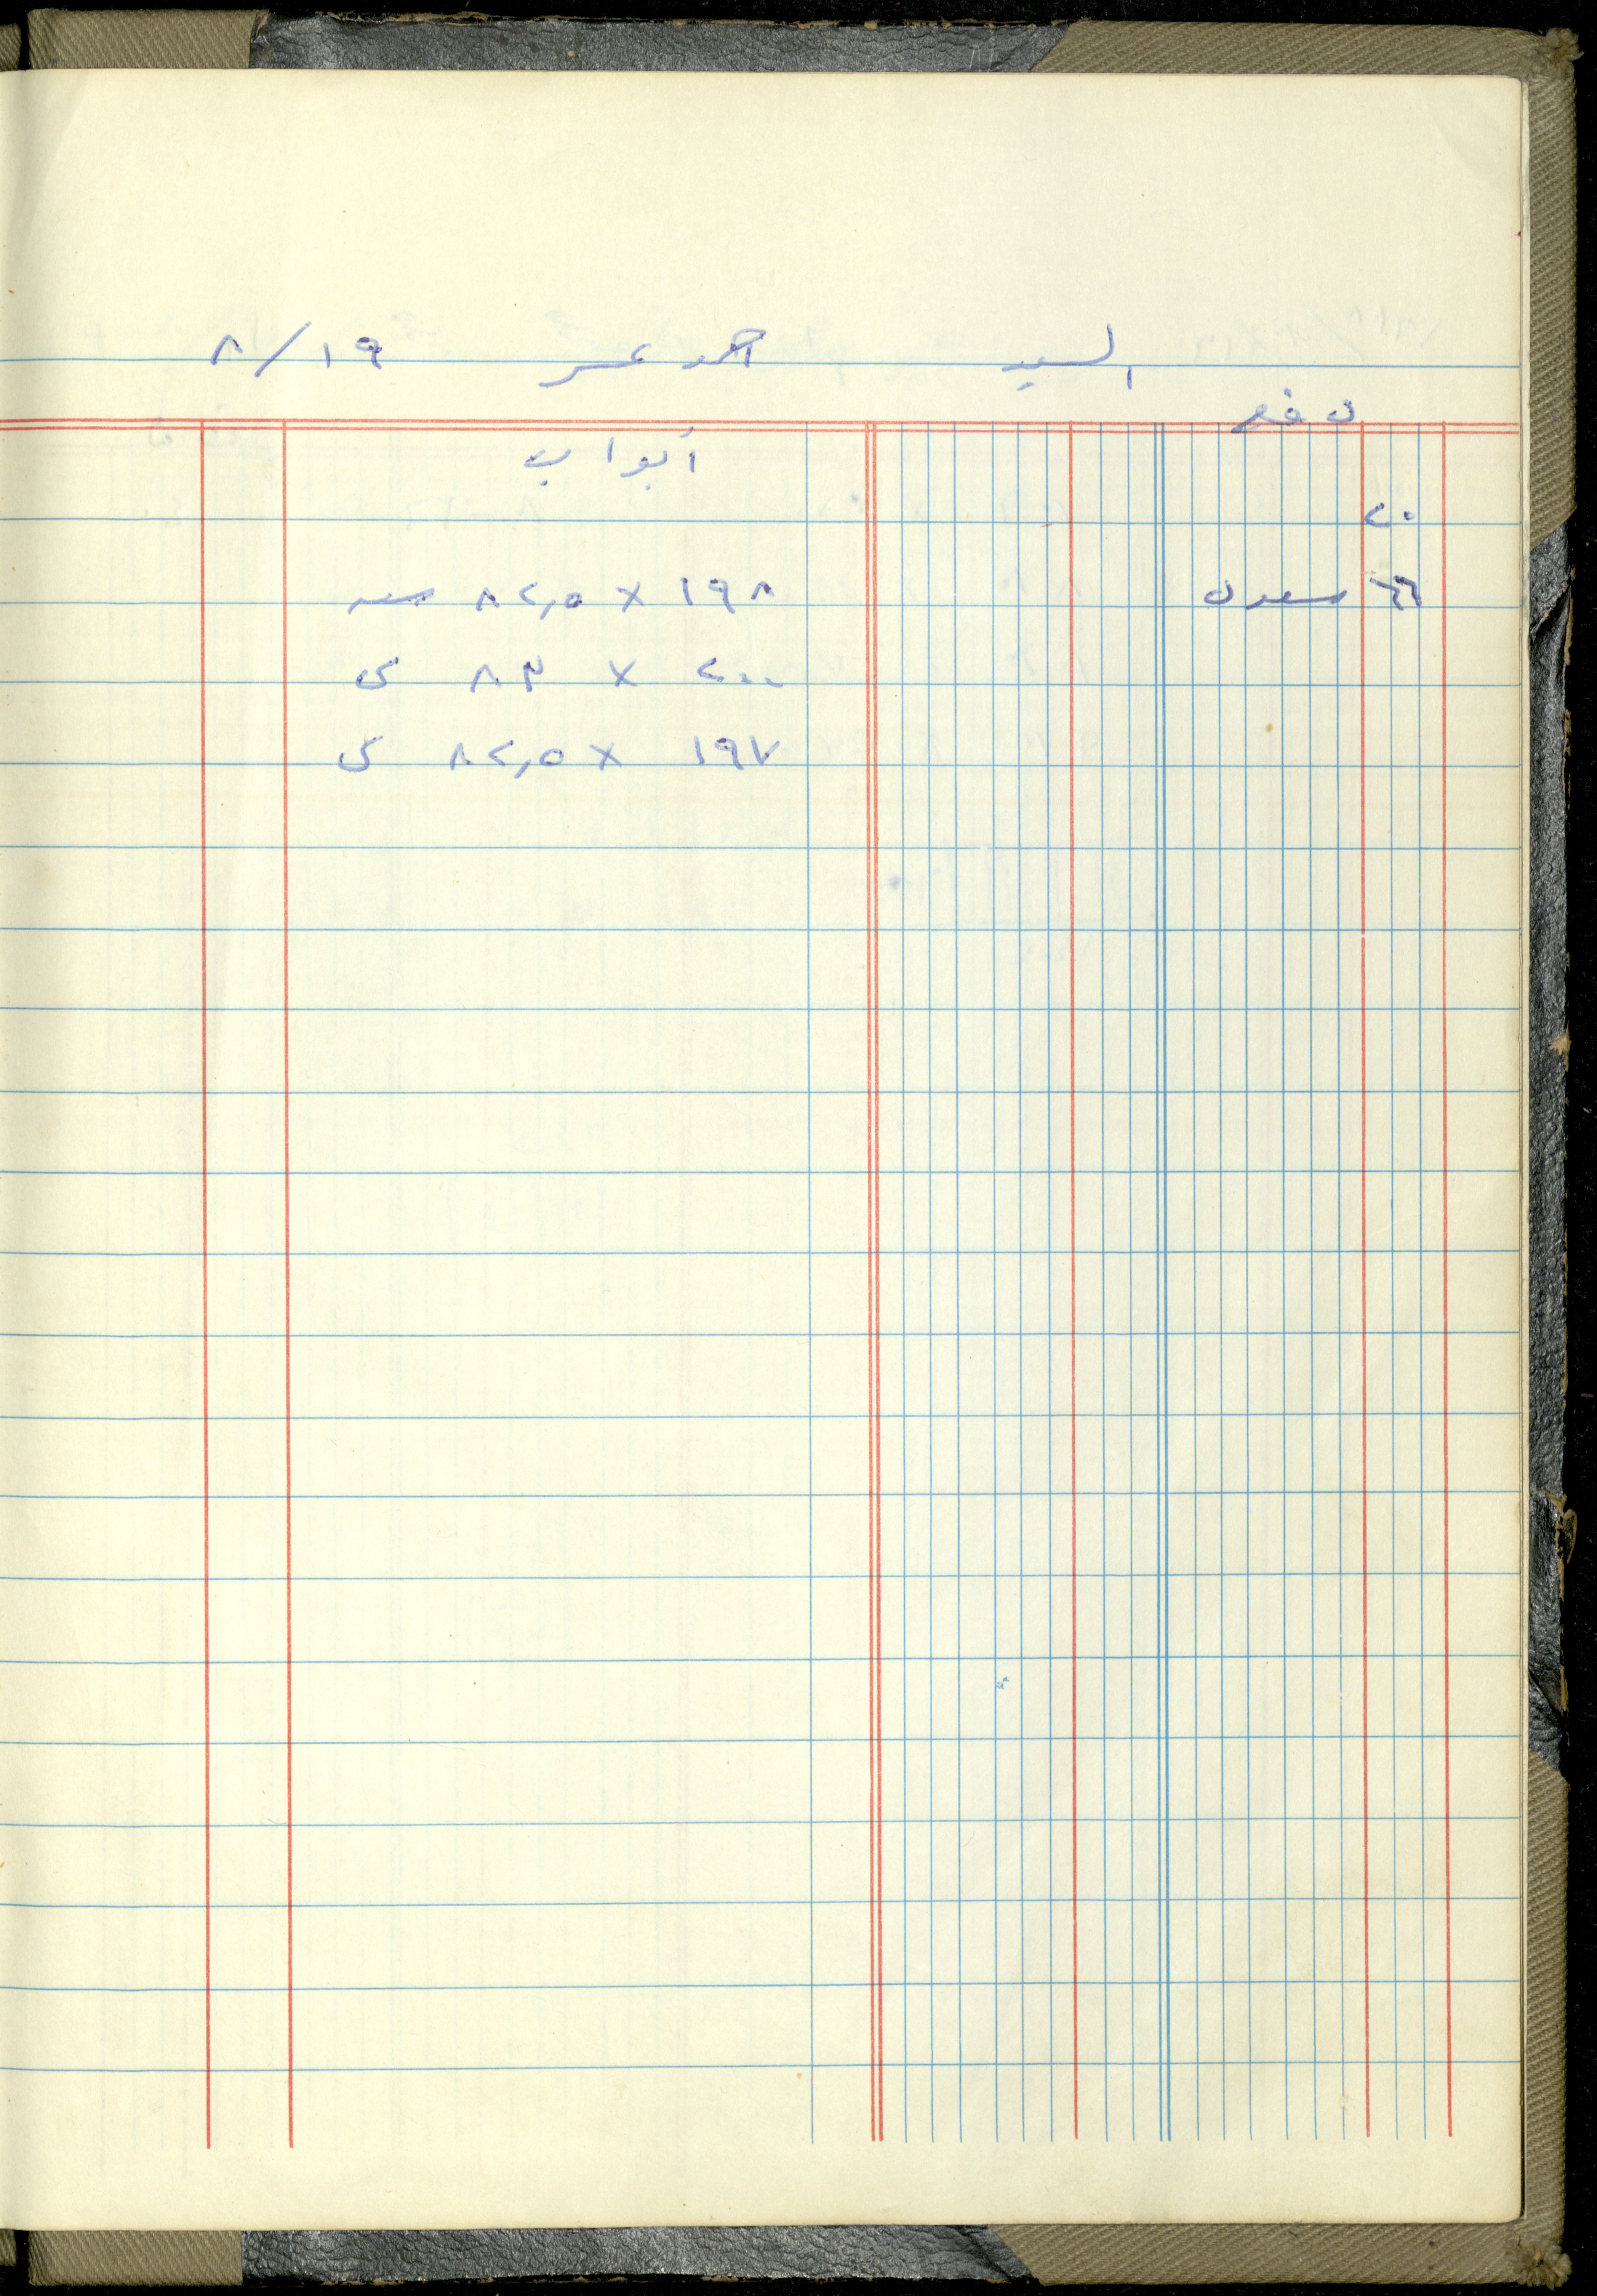 السيد احمد عمر ١٩/٨
دفع
أبواب
٢٠
٦٦
١٩٨ × ٨٢,٥
٢٠٠ × ٨٣ ى
١٩٧ × ٨٢,٥ ى